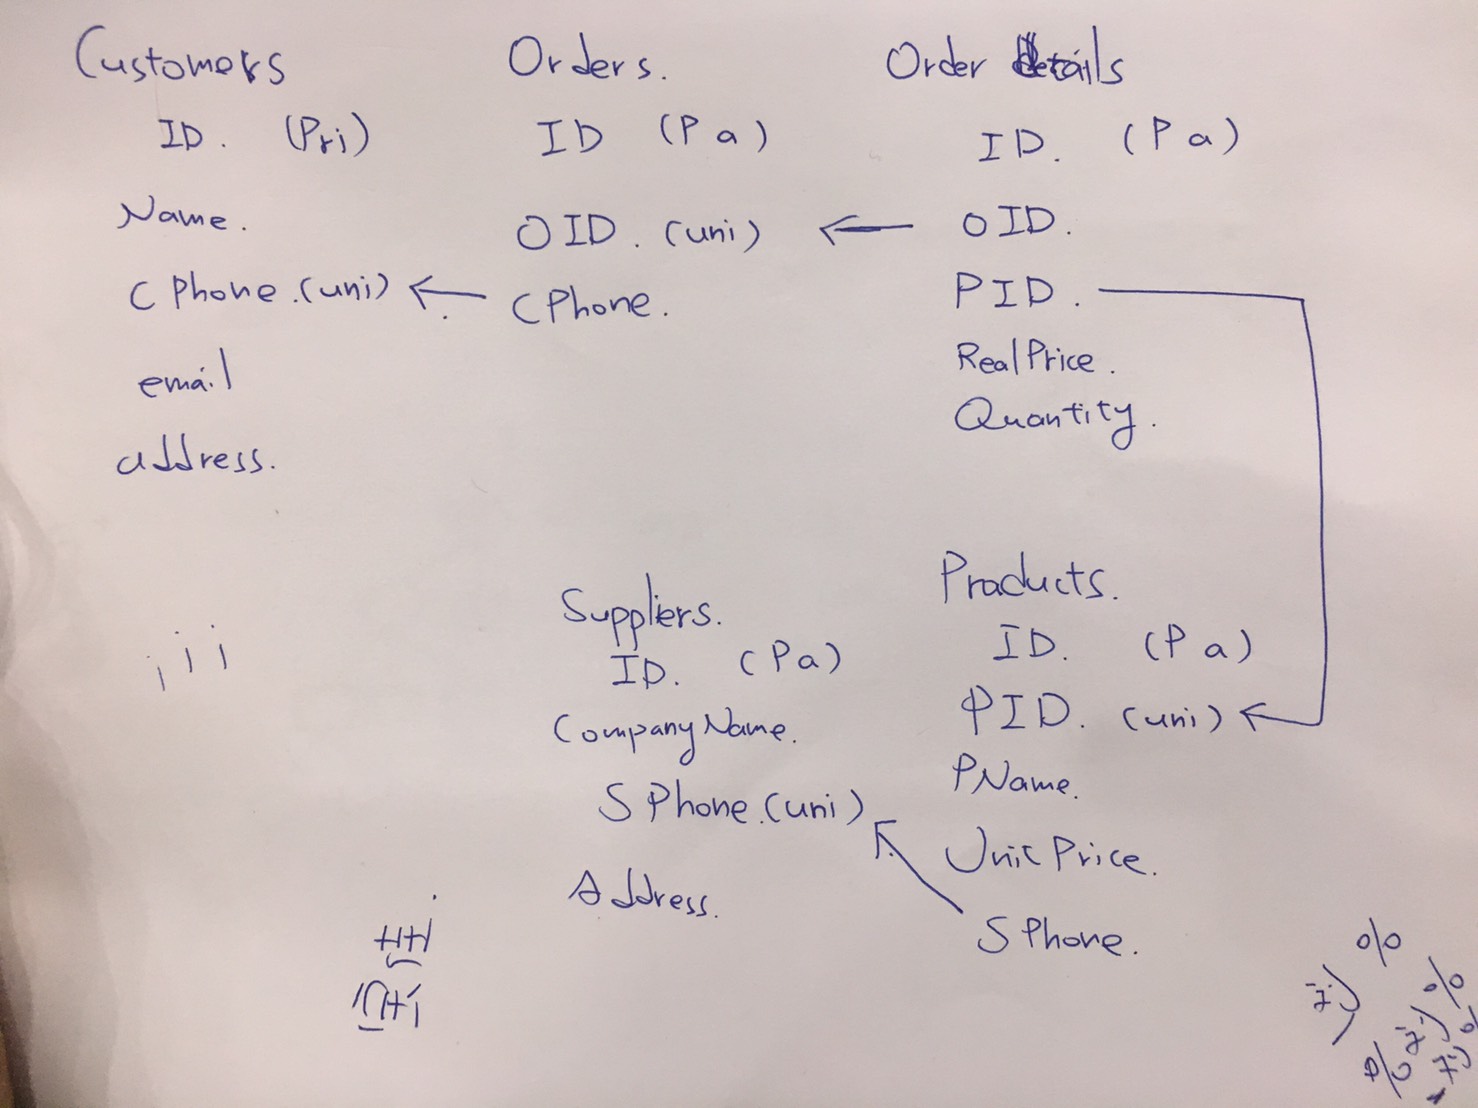 Customers
ID. (Pri)
Name.
CPhone.(uni)
email
address.
Orders.
ID (Pa)
OID.(uni)
CPhone.
Order details
ID. (Pa)
OID.
PID.
RealPrice.
Quantity.
Suppliers.
ID. (Pa)
CompanyName.
SPhone.(uni)
Address.
Products.
ID. (Pa)
PID. (uni)
PName.
UnitPrice.
SPhone.